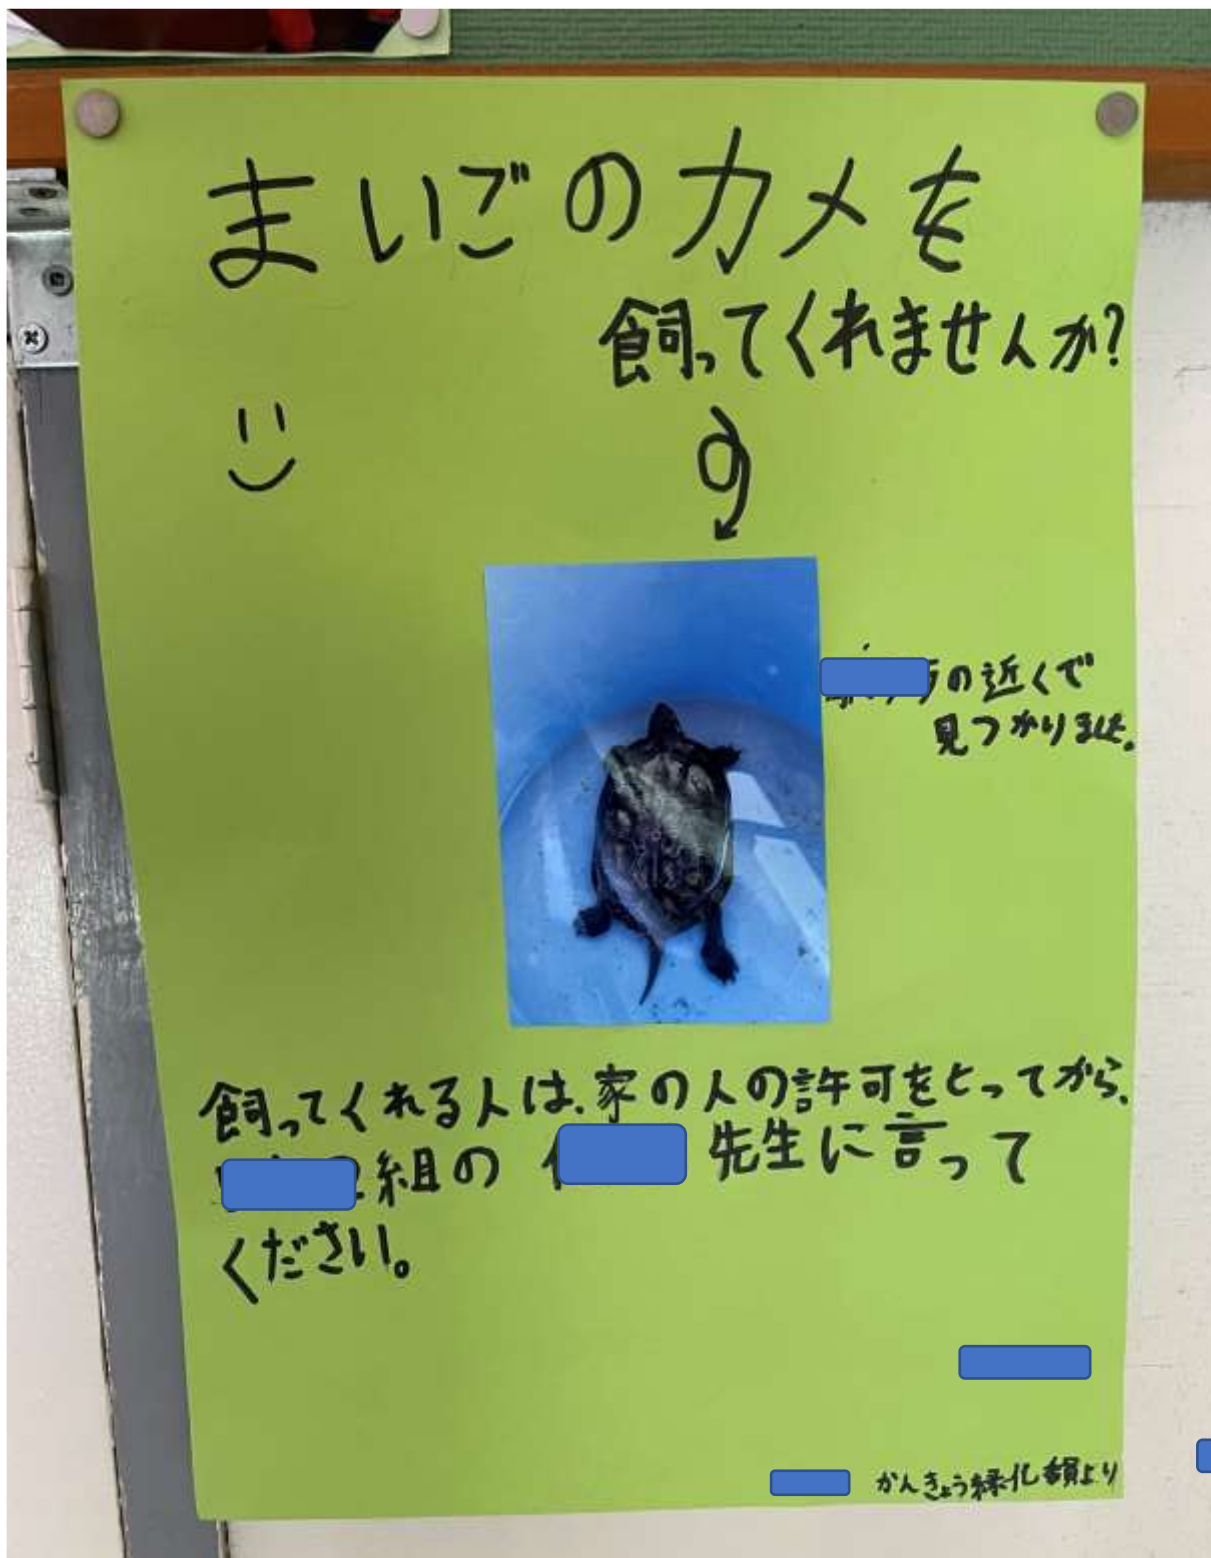 まいごのカメを
飼ってくれませんか?
の近くで
見つかりました。
飼ってくれる人は、家の人の許可をとってから、
組の 先生に言って
ください。
かんきょう緑化委員より